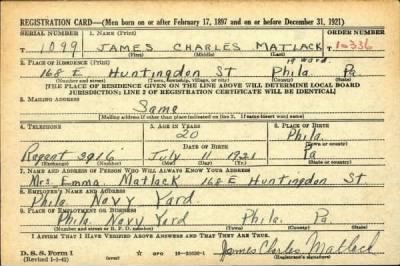 REGISTRATION CARD—(Men born on or after February 17, 1897 and on or before December 31, 1921)
SERIAL NUMBER 1. NAME (Print) ORDER NUMBER
T 1099 JAMES CHARLES MATLACK 10336
(First) (Middle) (Last)
2. PLACE OF RESIDENCE (Print) 19 Ward.
168 E Huntingdon St Phila Pa
(Number and street) (Town, township, village, or city) (County) (State)
[THE PLACE OF RESIDENCE GIVEN ON THE LINE ABOVE WILL DETERMINE LOCAL BOARD
JURISDICTION; LINE 2 OF REGISTRATION CERTIFICATE WILL BE IDENTICAL]
3. MAILING ADDRESS
Same
[Mailing address if other than place indicated on line 2. If same insert word same]
4. TELEPHONE 5. AGE IN YEARS 6. PLACE OF BIRTH
20 Phila.
DATE OF BIRTH (Town or county)
Regent 3916 July 11 1921 Pa
(Exchange) (Number) (Mo.) (Day) (Yr.) (State or country)
7. NAME AND ADDRESS OF PERSON WHO WILL ALWAYS KNOW YOUR ADDRESS
Mrs. Emma Matlack 168 E Huntingdon St.
8. EMPLOYER'S NAME AND ADDRESS
Phila Navy Yard
9. PLACE OF EMPLOYMENT OR BUSINESS
Phila. Navy Yard Phila. Pa
(Number and street or R. F. D. number) (Town) (County) (State)
I AFFIRM THAT I HAVE VERIFIED ABOVE ANSWERS AND THAT THEY ARE TRUE.
D. S. S. Form 1 GPO James Charles Matlack
(Revised 1-2-42) (Registrant's signature)